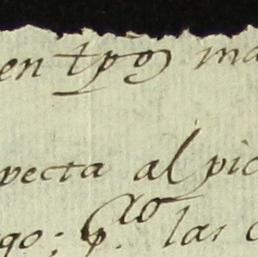 en tpo ma
pecta al pic
go; p.ao las c